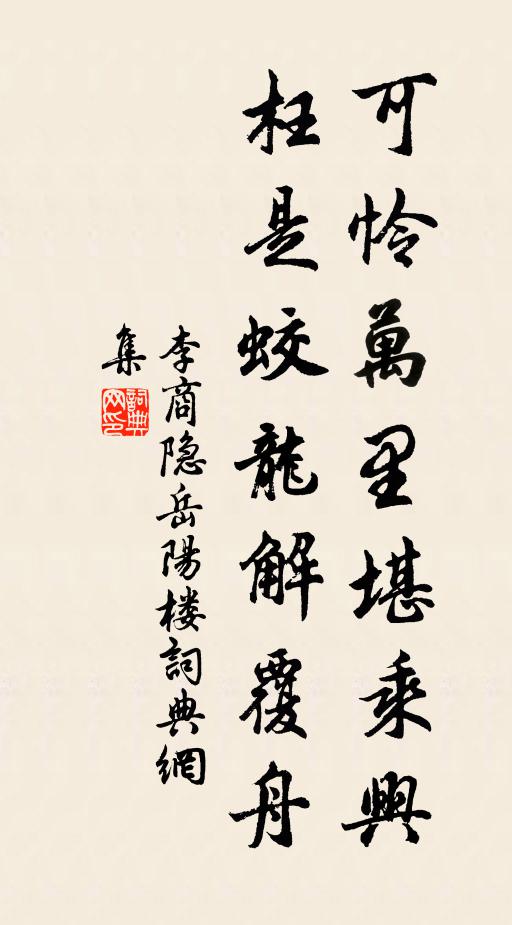 可怜萬里堪乘興
枉是蛟龍解覆舟
李商隐岳陽楼詞典網
集
詞典网印